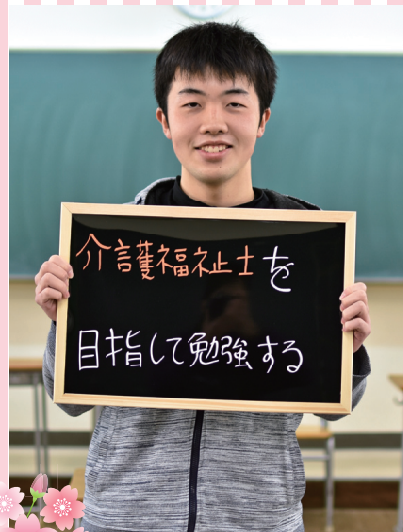 介護福祉士を
目指して勉強する